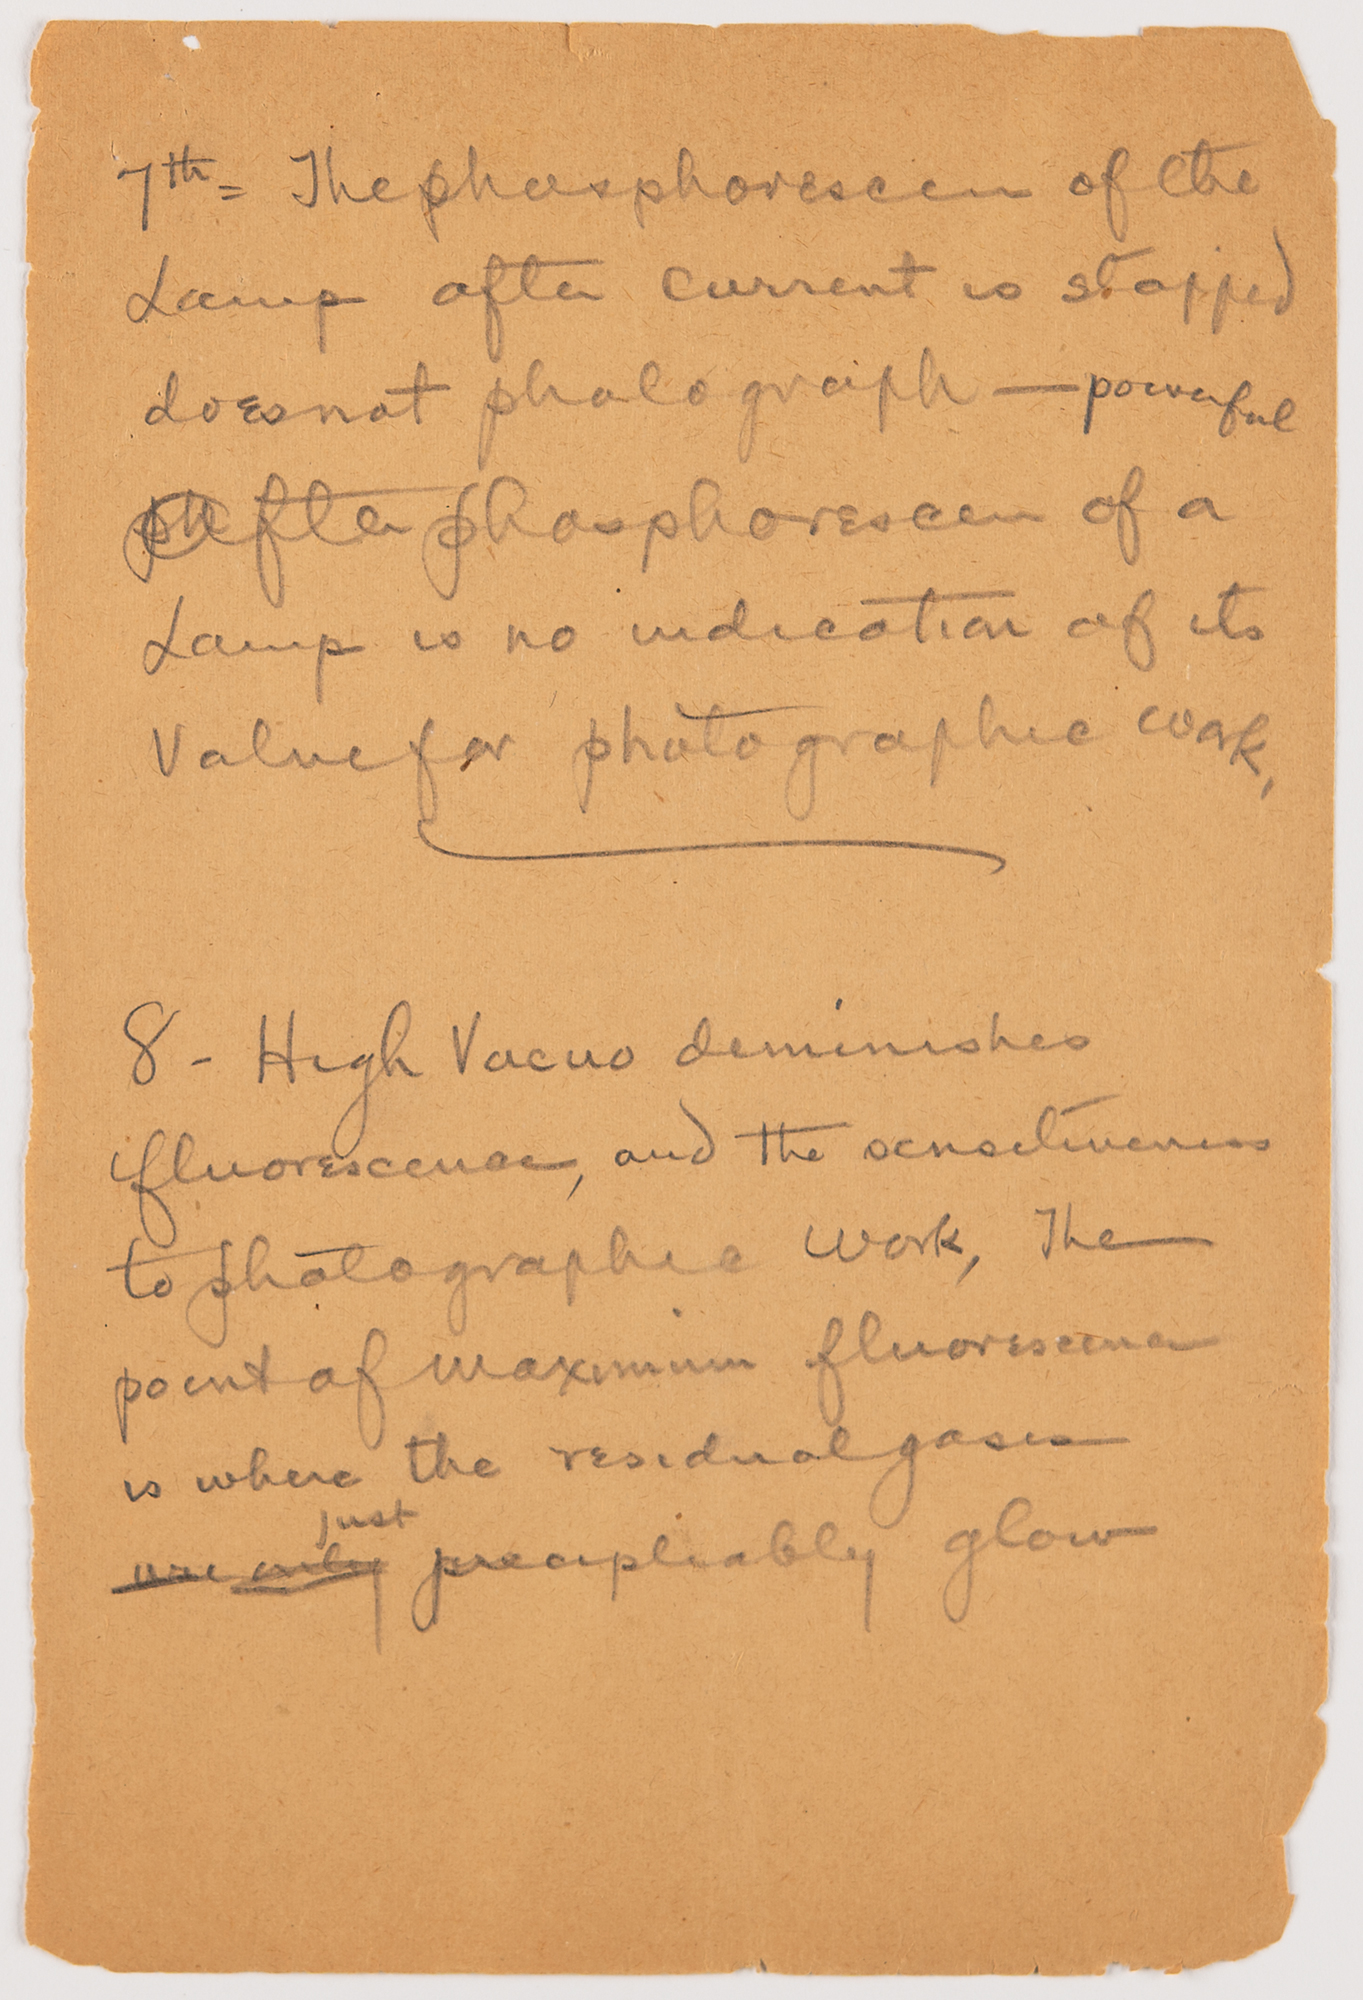 7th = The phosphorescen of the
Lamp after current is stopped
does not photograph — powerful
after phosphorescen of a
Lamp is no indication of its
Value for photographic work,
8 - High Vacuo deminishes
fluorescence, and the sensitiveness
to photographic work, The
point of maximum fluorescence
is where the residual gases
just
are only precipliably glow